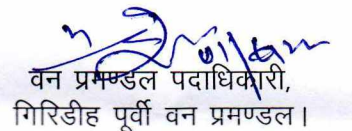 वन प्रमण्डल पदाधिकारी,
गिरिडीह पूर्वी वन प्रमण्डल।